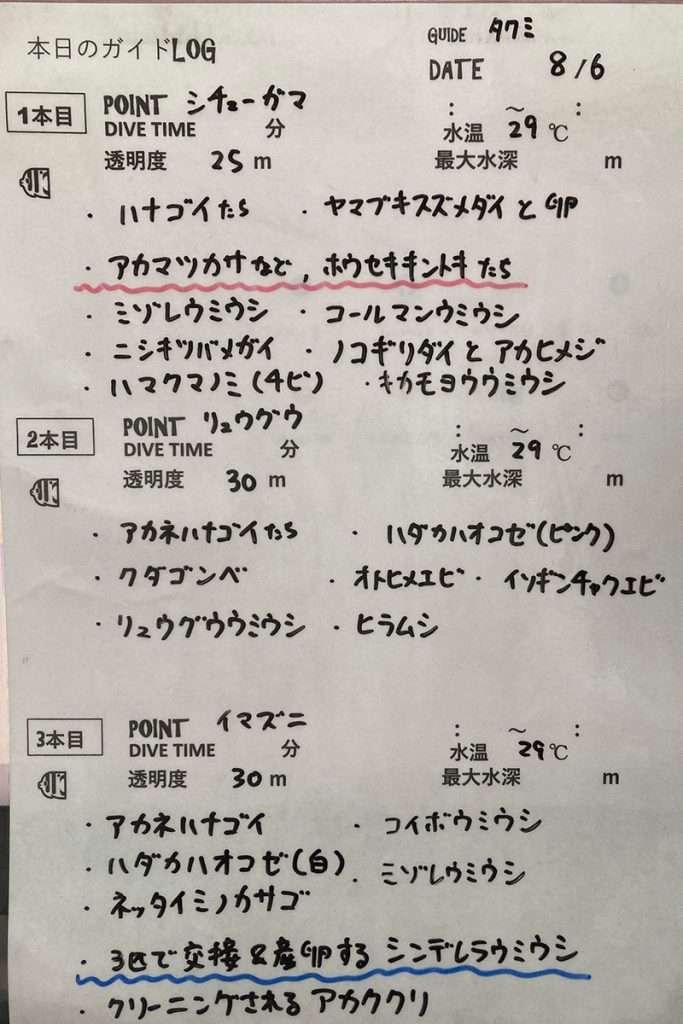 本日のガイドLOG GUIDE タクミ
DATE 8/6
1本目 POINT シチューガマ : ～ :
DIVE TIME 分 水温 29℃
透明度 25 m 最大水深 m
・ハナゴイたち ・ヤマブキスズメダイと卵
・アカマツカサなど,ホウセキキントキたち
・ミゾレウミウシ ・コールマンウミウシ
・ニシキツバメガイ ・ノコギリダイとアカヒメジ
・ハマクマノミ(4ビ) ・キカモヨウウミウシ
2本目 POINT リュウグウ : ～ :
DIVE TIME 分 水温 29℃
透明度 30 m 最大水深 m
・アカネハナゴイたち ・ハダカハオコゼ(ピンク)
・クダゴンベ ・オトヒメエビ ・イソギンチャクエビ
・リュウグウウミウシ ・ヒラムシ
3本目 POINT イマズニ : ～ :
DIVE TIME 分 水温 29℃
透明度 30 m 最大水深 m
・アカネハナゴイ ・コイボウミウシ
・ハダカハオコゼ(白) ・ミゾレウミウシ
・ネッタイミノカサゴ
・3匹で交接&産卵するシンデレラウミウシ
・クリーニングされるアカククリ